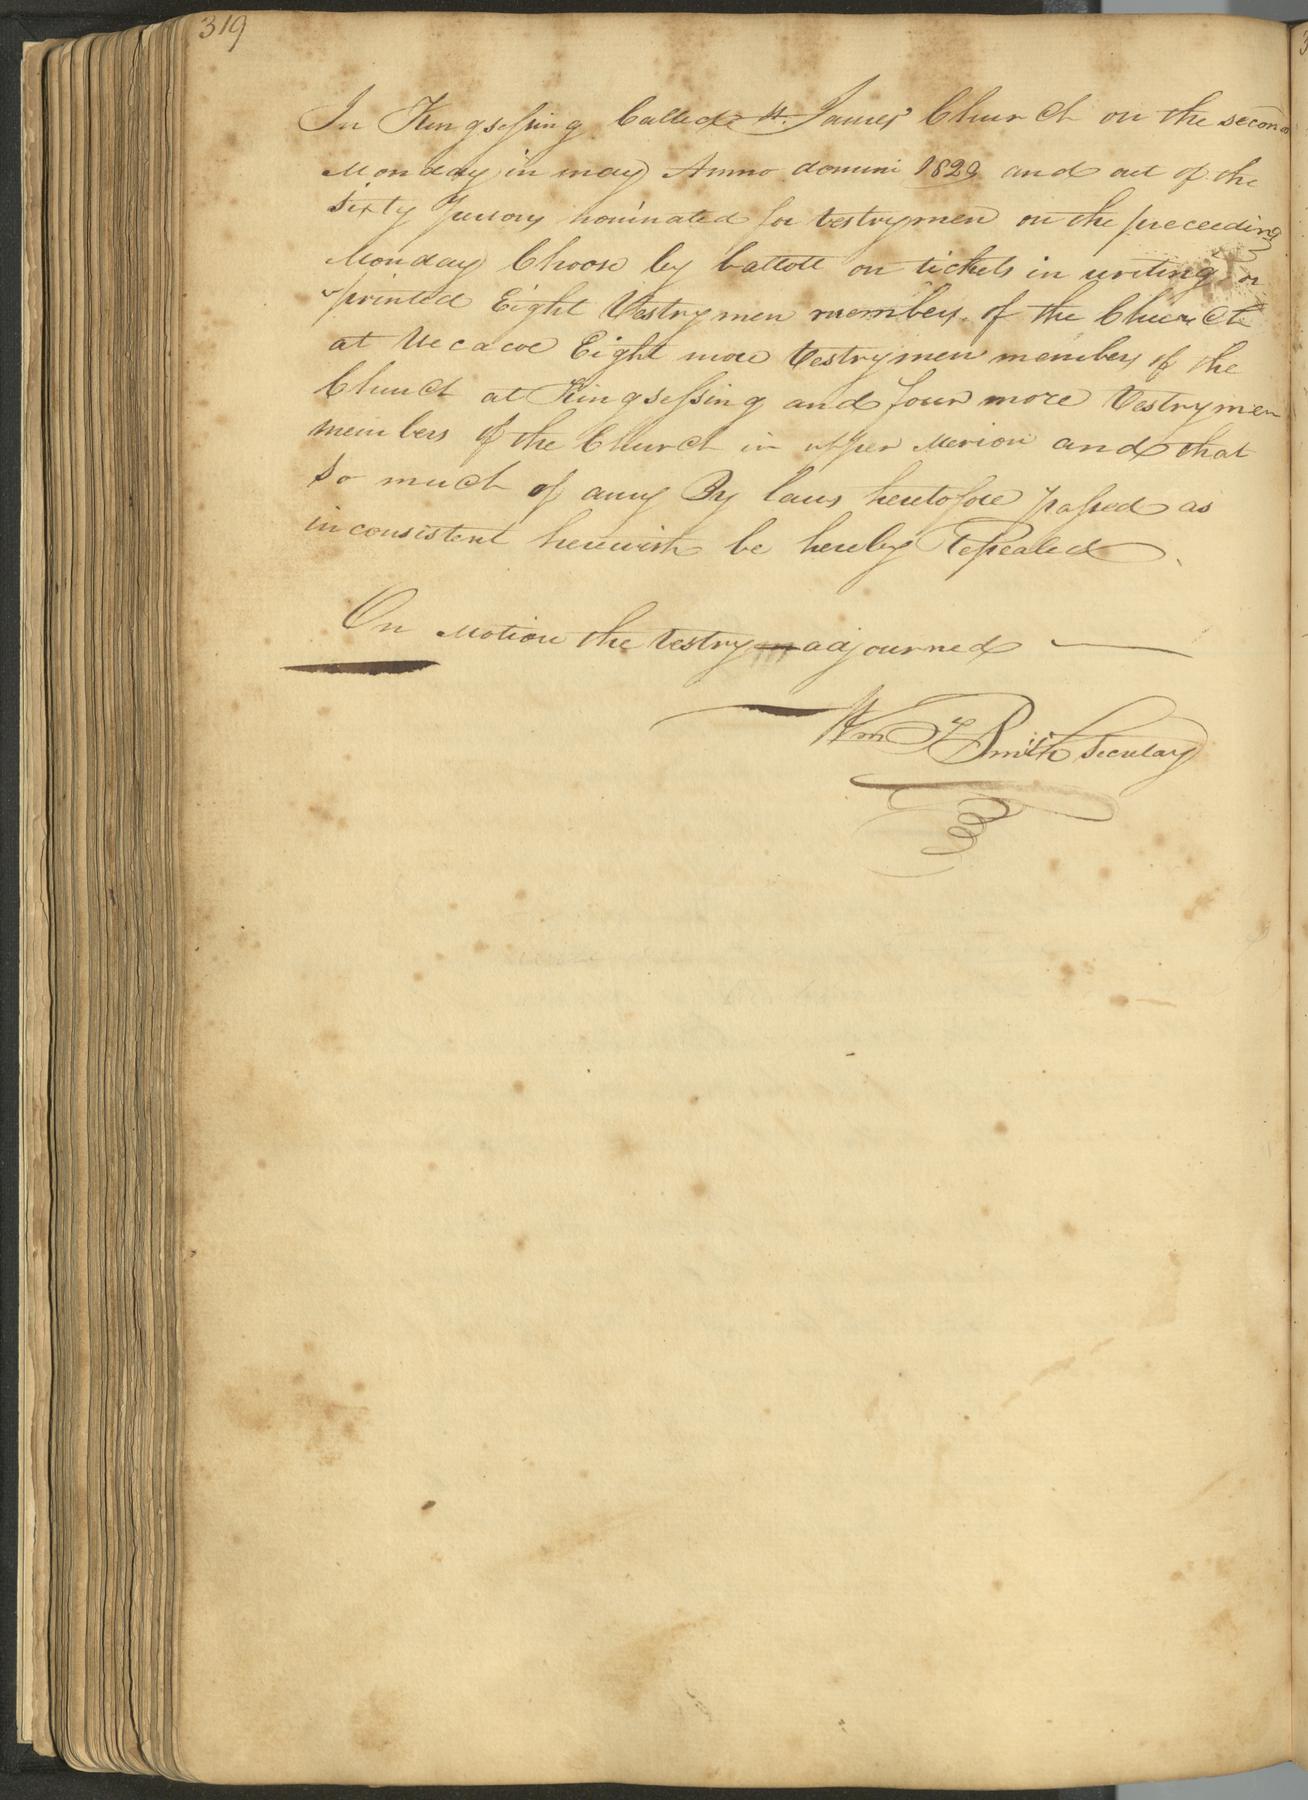 319
In Kingsessing Called St. James' Church on the second
Monday in may Anno domini 1829 and out of the
sixty Persons nominated for Vestrymen on the preceeding
Monday Choose by ballott on tickets in writing or
printed Eight Vestrymen members of the Church
at Wecacoe Eight more Vestrymen members of the
Church at Kingsessing and four more Vestrymen
members of the Church in upper Merion and that
So much of any By laws heretofore passed as
inconsistent herewith be hereby Repealed.
On Motion the Vestry adjourned
Wm Smith Secretary